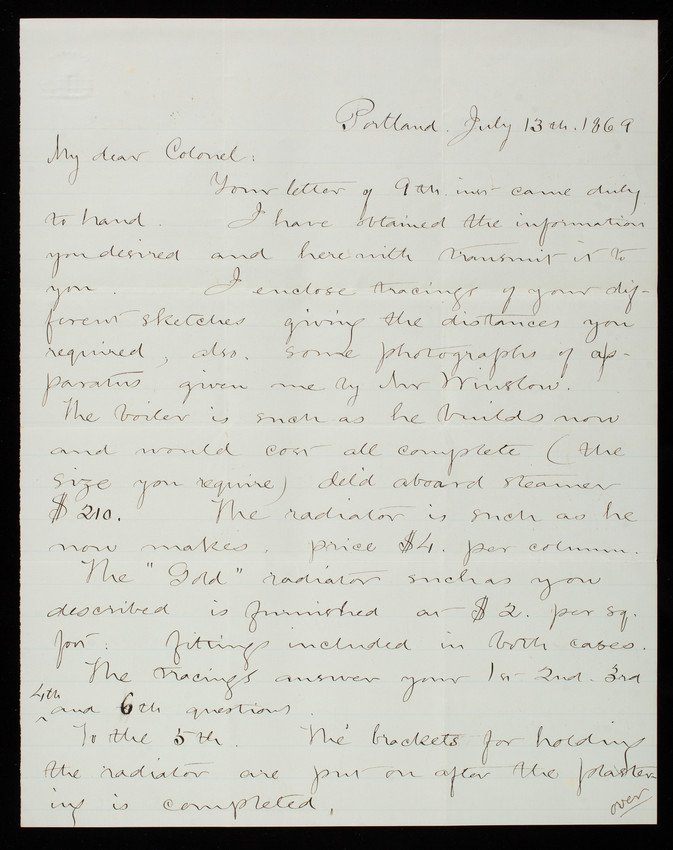 Portland. July 13th. 1869
My dear Colonel:
Your letter of 9th. inst came duly
to hand. I have obtained the information
you desired and herewith transmit it to
you. I enclose tracings of your dif-
ferent sketches giving the distances you
required, also. some photographs of ap-
paratus given me by Mr Winslow.
The boiler is such as he builds now
and would cost all complete (the
size you require) del'd aboard steamer
$210. The radiator is such as he
now makes. price $4. per column.
The "Gold" radiator such as you
described is furnished at $2. per sq.
foot. fittings included in both cases.
The tracings answer your 1st 2nd. 3rd
4th
^ and 6th questions.
To the 5th. The brackets for holding
the radiator are put on after the plaster-
ing is completed.
over